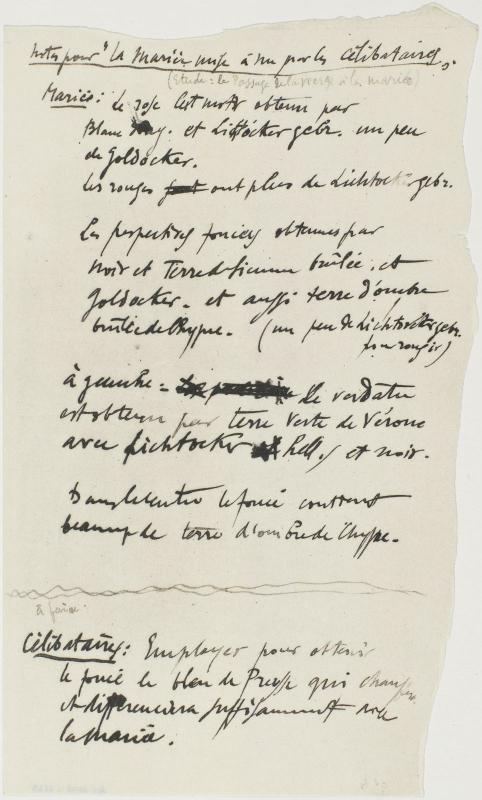 Notes pour "la Mariée mise à nu par les célibataires.
(Etude: le Passage de la vierge à la mariée)
Mariée: Le rose est obtenu par
Blanc et Lichtocker gebr. un peu
de Goldocker.
Les rouges ont plus de Lichtocker gebr.
Les perspectives foncées obtenues par
noir et Terre de Sienne brûlée, et
Goldocker. et aussi terre d'ombre
brûlée de Chypre. (un peu de Lichtocker gebr.
pour rougir)
à gauche - le verdatre
est obtenu par terre verte de Vérone
avec Lichtocker hell. et noir.
Dans le centre le foncé contient
beaucoup de terre d'ombre de Chypre.
à faire.
Célibataires: Employer pour obtenir
le foncé le bleu de Prusse qui changera
et differenciera suffisamment avec
la mariée.